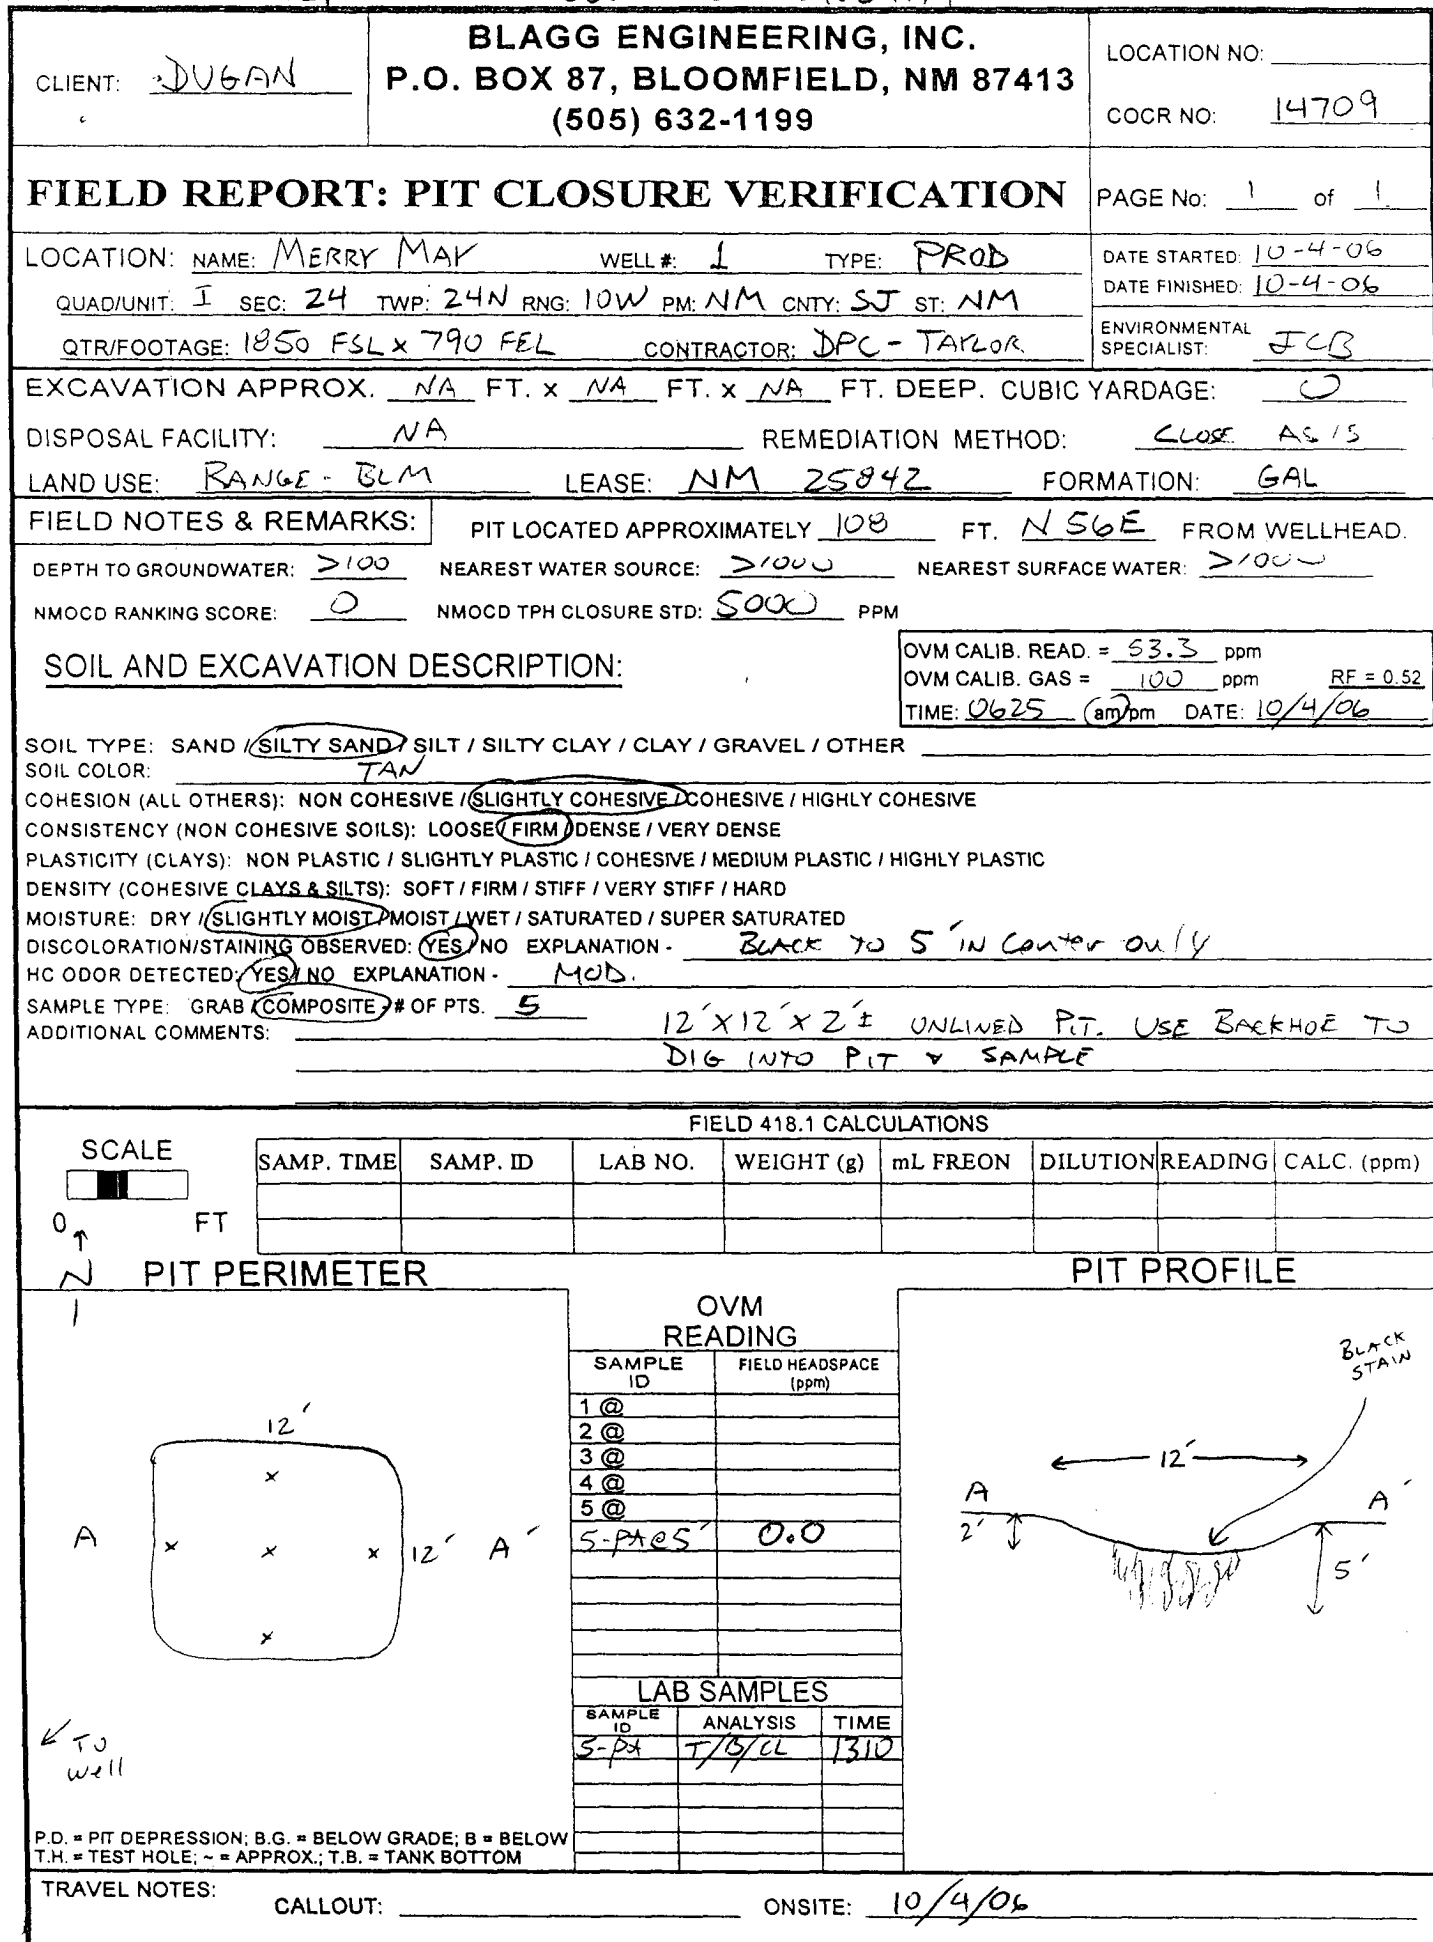 CLIENT: DUGAN
BLAGG ENGINEERING, INC.
P.O. BOX 87, BLOOMFIELD, NM 87413
(505) 632-1199
LOCATION NO:
COCR NO: 14709
FIELD REPORT: PIT CLOSURE VERIFICATION
PAGE No: 1 of 1
LOCATION: NAME: MERRY MAY WELL #: 1 TYPE: PROD
QUAD/UNIT: I SEC: 24 TWP: 24N RNG: 10W PM: NM CNTY: SJ ST: NM
QTR/FOOTAGE: 1850 FSL x 790 FEL CONTRACTOR: DPC - TAYLOR
DATE STARTED: 10-4-06
DATE FINISHED: 10-4-06
ENVIRONMENTAL
SPECIALIST: JCB
EXCAVATION APPROX. NA FT. x NA FT. x NA FT. DEEP. CUBIC YARDAGE: 0
DISPOSAL FACILITY: NA REMEDIATION METHOD: CLOSE AS IS
LAND USE: RANGE - BLM LEASE: NM 25842 FORMATION: GAL
FIELD NOTES & REMARKS: PIT LOCATED APPROXIMATELY 108 FT. N56E FROM WELLHEAD.
DEPTH TO GROUNDWATER: >100 NEAREST WATER SOURCE: >1000 NEAREST SURFACE WATER: >1000
NMOCD RANKING SCORE: 0 NMOCD TPH CLOSURE STD: 5000 PPM
SOIL AND EXCAVATION DESCRIPTION:
OVM CALIB. READ. = 53.3 ppm
OVM CALIB. GAS = 100 ppm RF = 0.52
TIME: 0625 am/pm DATE: 10/4/06
SOIL TYPE: SAND / SILTY SAND / SILT / SILTY CLAY / CLAY / GRAVEL / OTHER
SOIL COLOR: TAN
COHESION (ALL OTHERS): NON COHESIVE / SLIGHTLY COHESIVE / COHESIVE / HIGHLY COHESIVE
CONSISTENCY (NON COHESIVE SOILS): LOOSE / FIRM / DENSE / VERY DENSE
PLASTICITY (CLAYS): NON PLASTIC / SLIGHTLY PLASTIC / COHESIVE / MEDIUM PLASTIC / HIGHLY PLASTIC
DENSITY (COHESIVE CLAYS & SILTS): SOFT / FIRM / STIFF / VERY STIFF / HARD
MOISTURE: DRY / SLIGHTLY MOIST / MOIST / WET / SATURATED / SUPER SATURATED
DISCOLORATION/STAINING OBSERVED: YES / NO EXPLANATION - BLACK TO 5' IN Center only
HC ODOR DETECTED: YES / NO EXPLANATION - MOD.
SAMPLE TYPE: GRAB / COMPOSITE - # OF PTS. 5
ADDITIONAL COMMENTS: 12' X 12' X 2'± UNLINED PIT. USE BACKHOE TO
DIG INTO PIT & SAMPLE
FIELD 418.1 CALCULATIONS
SCALE
SAMP. TIME SAMP. ID LAB NO. WEIGHT (g) mL FREON DILUTION READING CALC. (ppm)
0 FT
N
PIT PERIMETER
PIT PROFILE
OVM
READING
SAMPLE ID FIELD HEADSPACE (ppm)
1 @
2 @
3 @
4 @
5 @
5-pt @ 5' 0.0
12'
A 12' A'
TO
well
BLACK
STAIN
12'
A A'
2'
5'
LAB SAMPLES
SAMPLE ID ANALYSIS TIME
5-pt T/B/CL 1310
P.D. = PIT DEPRESSION; B.G. = BELOW GRADE; B = BELOW
T.H. = TEST HOLE; ~ = APPROX.; T.B. = TANK BOTTOM
TRAVEL NOTES: CALLOUT: ONSITE: 10/4/06